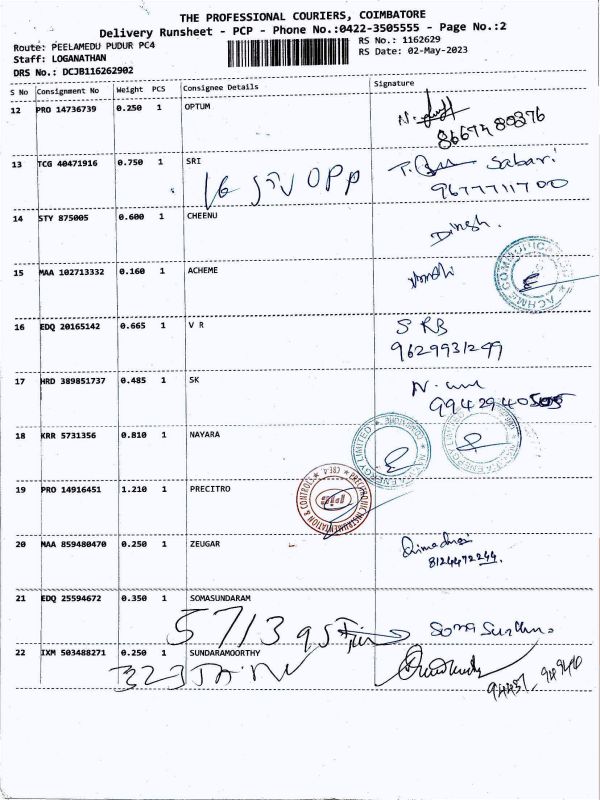 THE PROFESSIONAL COURIERS, COIMBATORE
Delivery Runsheet - PCP - Phone No.:0422-3505555 - Page No.:2
Route: PEELAMEDU PUDUR PC4
RS No.: 1162629
Staff: LOGANATHAN
RS Date: 02-May-2023
DRS No.: DCJB116262902
S No Consignment No Weight PCS Consignee Details Signature
12 PRO 14736739 0.250 1 OPTUM
13 TCG 40471916 0.750 1 SRI
Sabari
9677711700
14 STY 875005 0.600 1 CHEENU
Dinesh.
15 MAA 102713332 0.160 1 ACHEME
16 EDQ 20165142 0.665 1 V R
S RB
9629931299
17 HRD 389851737 0.485 1 SK
18 KRR 5731356 0.810 1 NAYARA
19 PRO 14916451 1.210 1 PRECITRO
20 MAA 859480470 0.250 1 ZEUGAR
8124472244.
21 EDQ 25594672 0.350 1 SOMASUNDARAM
5713
22 IXM 503488271 0.250 1 SUNDARAMOORTHY
323